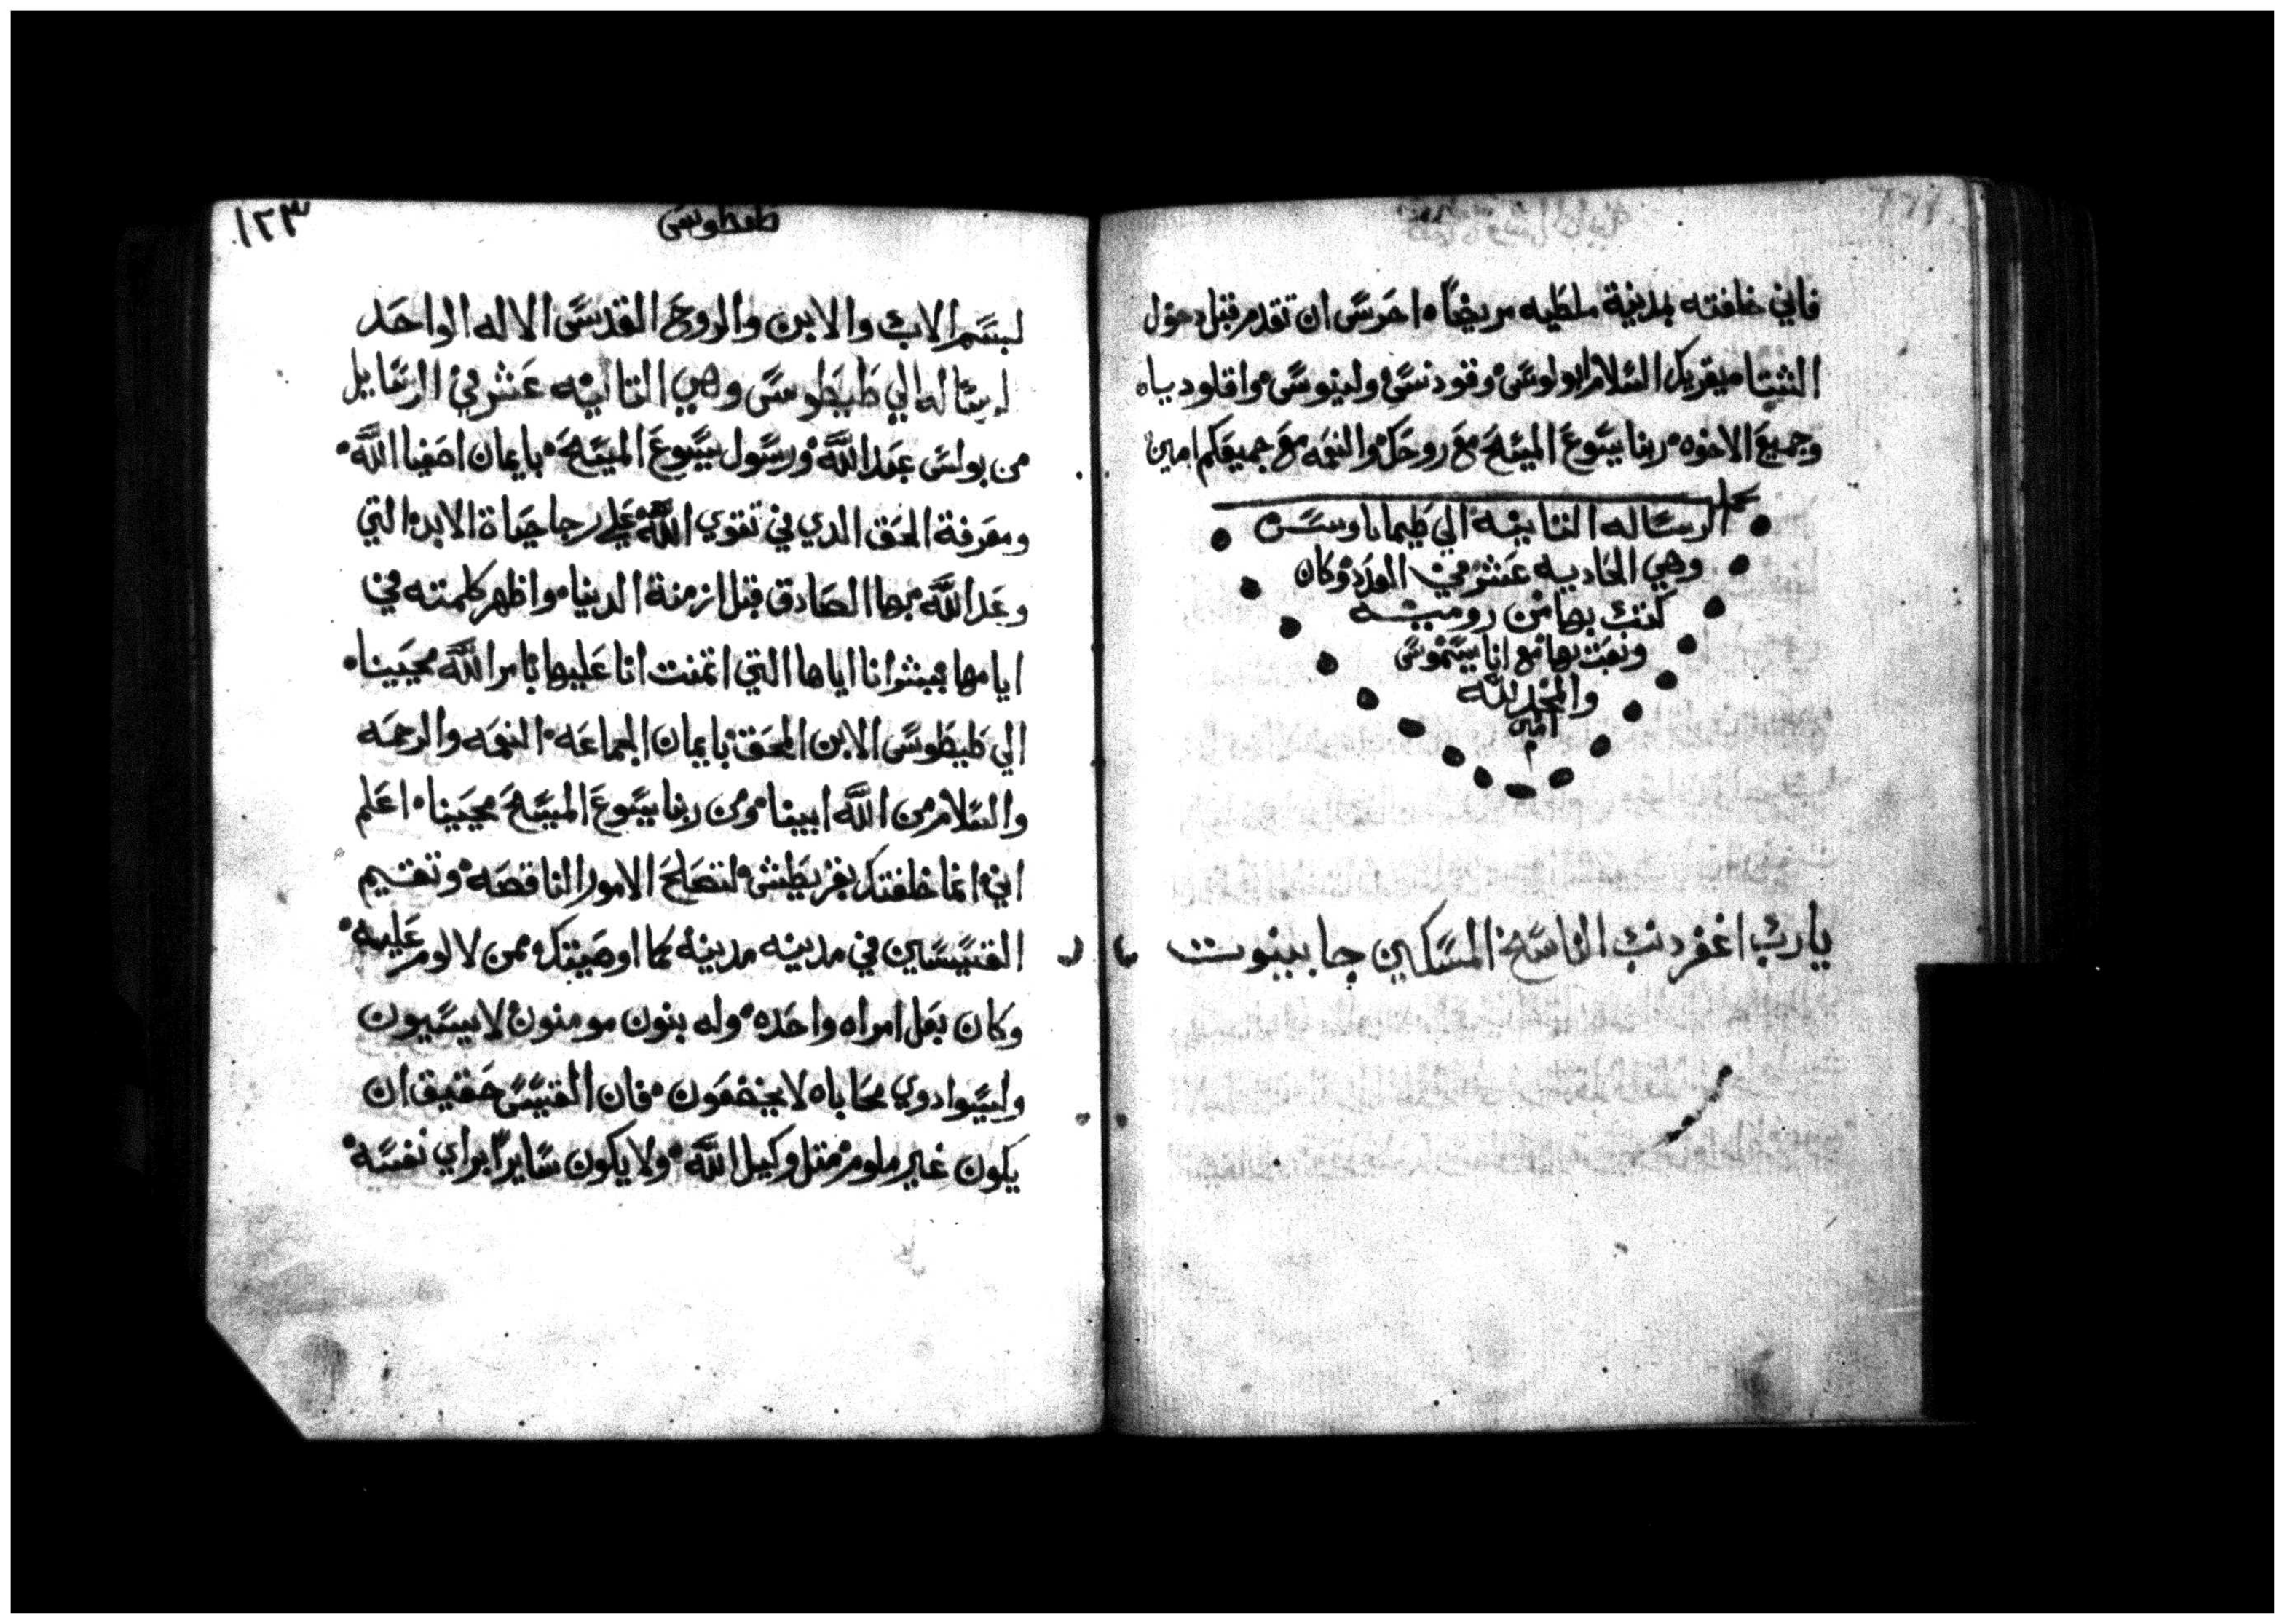 فاني خلفته بمدينة ملطيه مريضًا٠ احرس ان تقدم قبل دخول
الشتا ميقريك السلام ابولوس٠ وقودنس٠ ولينوس٠ واقلوديا٠
وجميع الاخوه٠ ربنا يسوع المسيح مع روحك٠ والنعمه مع جميعكم امين
كمل الرساله الثانيه الي طيماتاوس
وهي الحاديه عشر في العدد وكان
كتب بها من روميه
وبعث بها مع اناسيموس
والمجد لله
امين
يارب اغفر دنب الناسخ المسكين جا ببنوت
١٢٣
طيطوس
لبسم الاب والابن والروح القدس الاله الواحد
رساله الي طيطوس وهي الثانيه عشر في الرسايل
من بولس عبد الله٠ ورسول يسوع المسيح٠ بايمان اصفيا الله٠
ومعرفة الحق الدي في تقوي الله٠ علي رجا حياة الابد٠ التي
وعد الله بها الصادق قبل ازمنة الدنيا٠ واظهر كلمته في
ايامها ببشرانا اياها التي اتمنت انا عليها بامر الله محيينا٠
الي طيطوس الابن المحق٠ بايمان الجماعه٠ النعمه والرحمه
والسلام من الله ابينا٠ ومن ربنا يسوع المسيح محيينا٠ اعلم
اني انما خلفتك بقريطش٠ لتصلح الامور الناقصه٠ وتقسم
القسيسين في مدينه مدينه٠ كما اوصيتك٠ ممن لا لوم عليه٠
وكان بعل امراه واحده٠ وله بنون مومنون٠ لا يسبون
وليسوا دوي محاباه لا يخضعون٠ فان القسيس حقيق ان
يكون غير ملوم٠ مثل وكيل الله٠ ولا يكون سايرًا براي نفسه٠